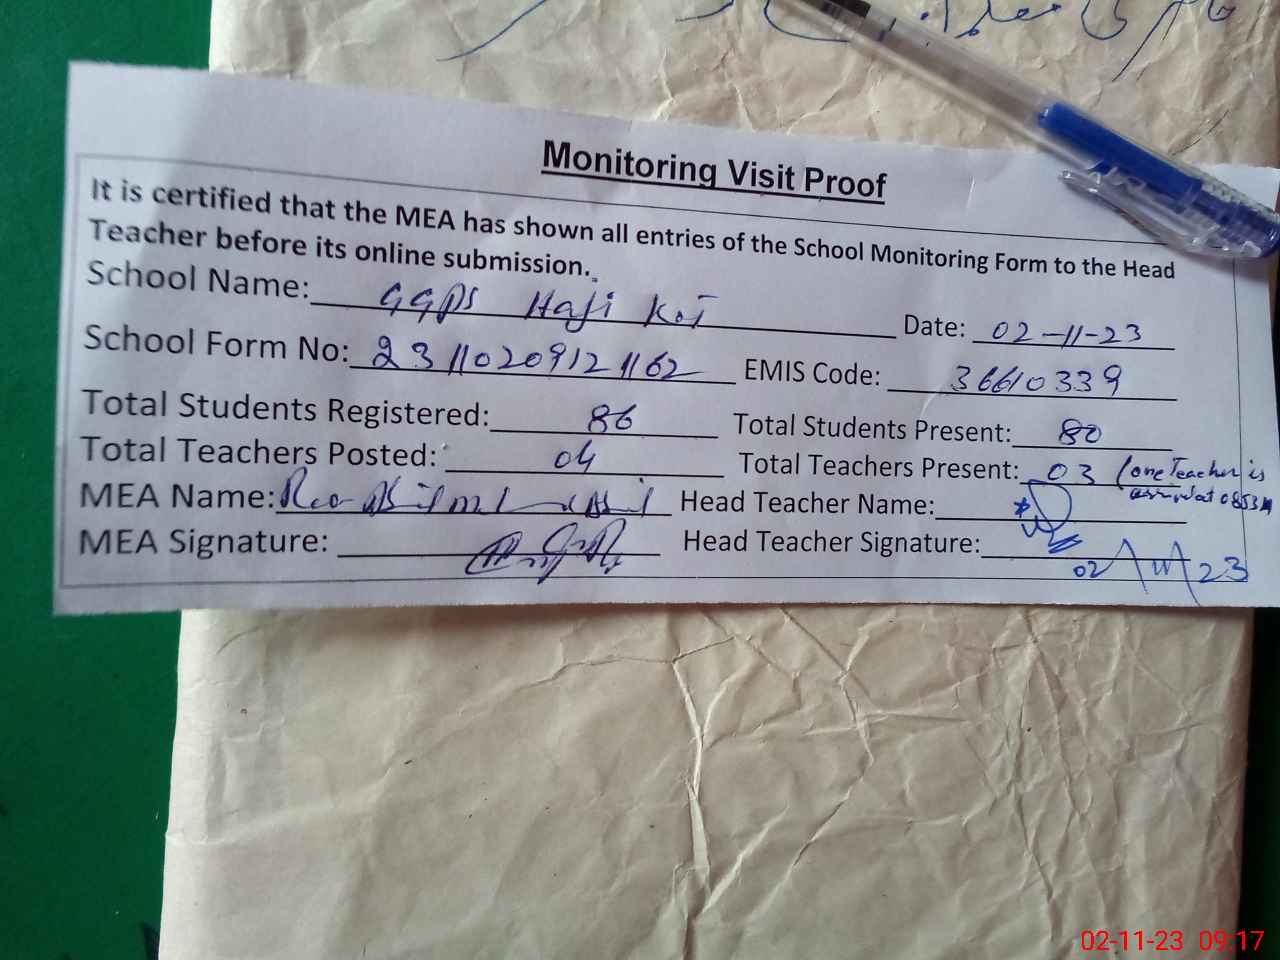 Monitoring Visit Proof
It is certified that the MEA has shown all entries of the School Monitoring Form to the Head
Teacher before its online submission.
School Name: GGPS Haji Kot Date: 02-11-23
School Form No: 23110209121162 EMIS Code: 36610339
Total Students Registered: 86 Total Students Present: 80
Total Teachers Posted: 04 Total Teachers Present: 03 (one Teacher is
at 0853
MEA Name: Head Teacher Name:
MEA Signature: Head Teacher Signature:
02 23
02-11-23 09:17